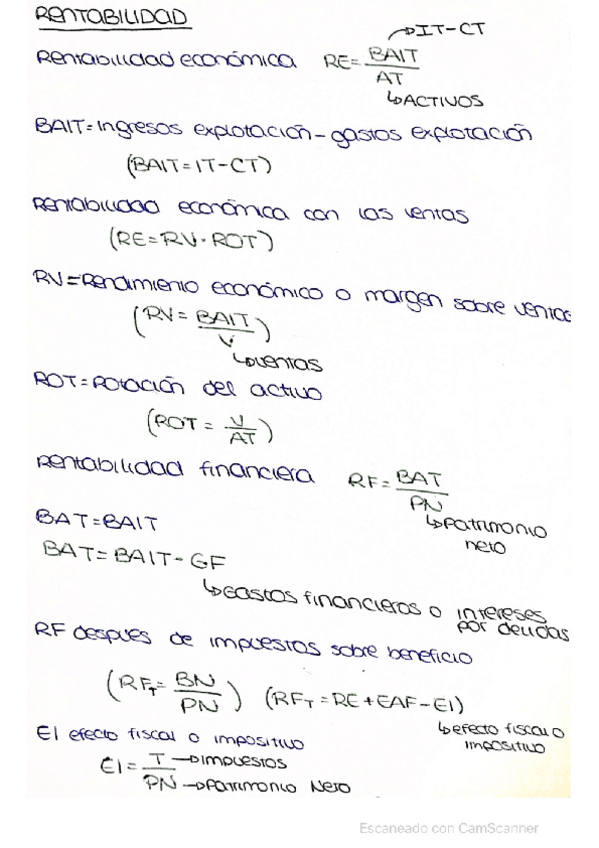 RENTABILIDAD
Rentabilidad económica RE = BAIT / AT
↳IT-CT
↳ACTIVOS
BAIT = Ingresos explotación - gastos explotación
(BAIT = IT - CT)
Rentabilidad económica con las ventas
(RE = RV · ROT)
RV = Rendimiento económico o margen sobre ventas
(RV = BAIT / V)
↳ventas
ROT = Rotación del activo
(ROT = V / AT)
Rentabilidad financiera RF = BAT / PN
↳Patrimonio
neto
BAT = BAIT
BAT = BAIT - GF
↳Gastos financieros o intereses
por deudas
RF despues de impuestos sobre beneficio
(RF_T = BN / PN) (RF_T = RE + EAF - EI)
↳efecto fiscal o
impositivo
El efecto fiscal o impositivo
EI = T →impuestos
PN →Patrimonio Neto
Escaneado con CamScanner